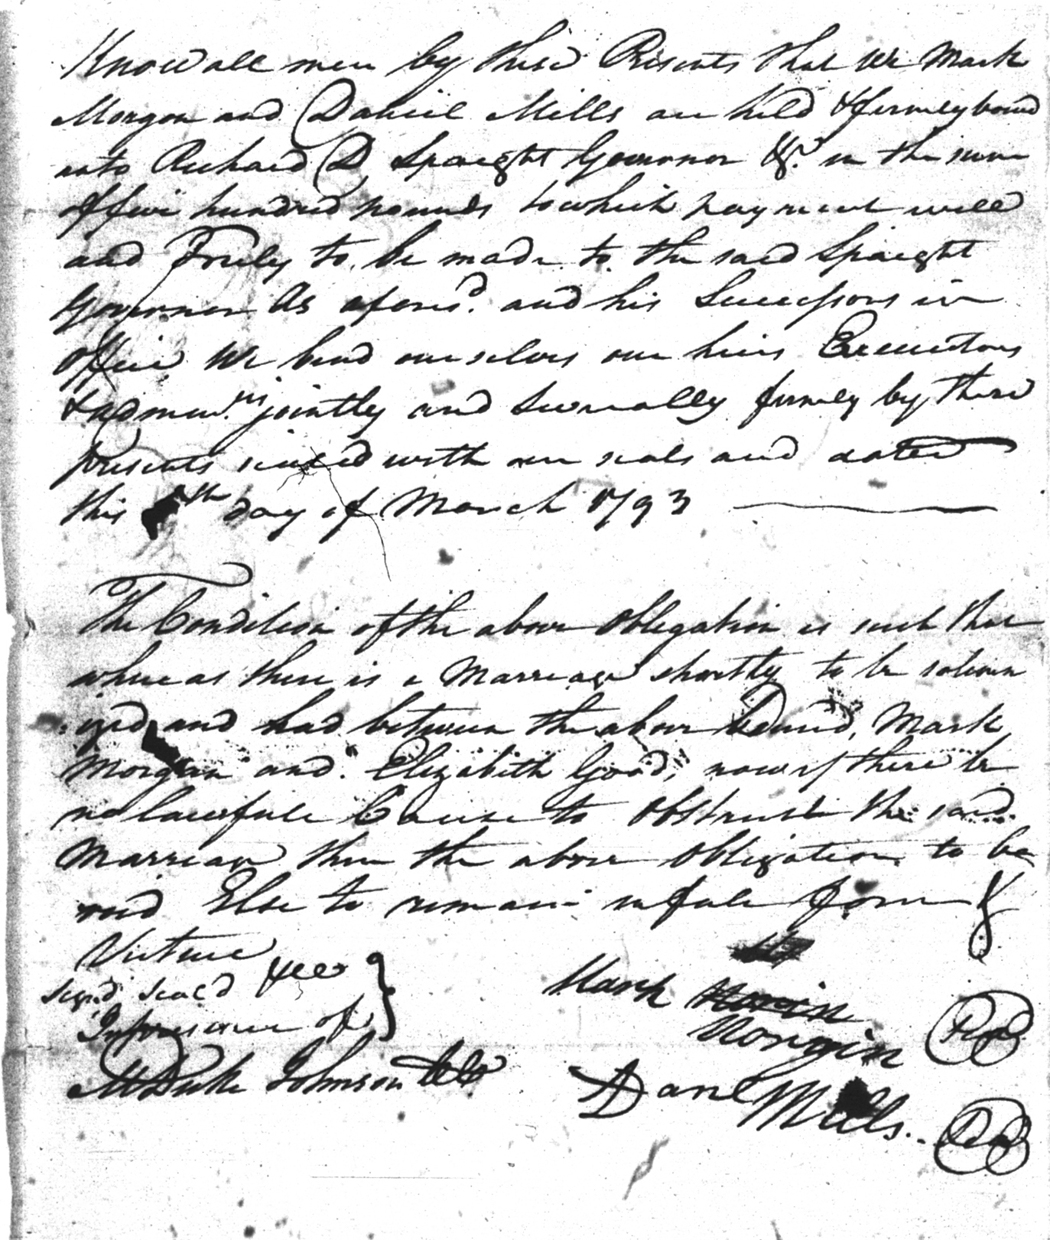 Know all men by these Presents that We Mark
Morgan and Daniel Mills are held & firmly bound
unto Richard D Spaight Governor &c. in the sum
of five hundred pounds to which payment well
and Truly to be made to the said Spaight
Governor As afores.d and his Successors in
office We bind ourselves our heirs Executors
& admin.rs jointly and Severally firmly by these
presents sealed with our seals and dated
this th day of March 1793
The Condition of the above Obligation is such that
where as there is a Marriage shortly to be solemn
ized and had between the above Mark
Morgan and Elizabeth Good, now if there be
no lawfull Cause to obstruct the said
Marriage then the above obligation to be
void Else to remain in full force &
Virtue
Sign'd Seal'd &
In presence of
Johnson
Mark
Morgin
Danl Mills